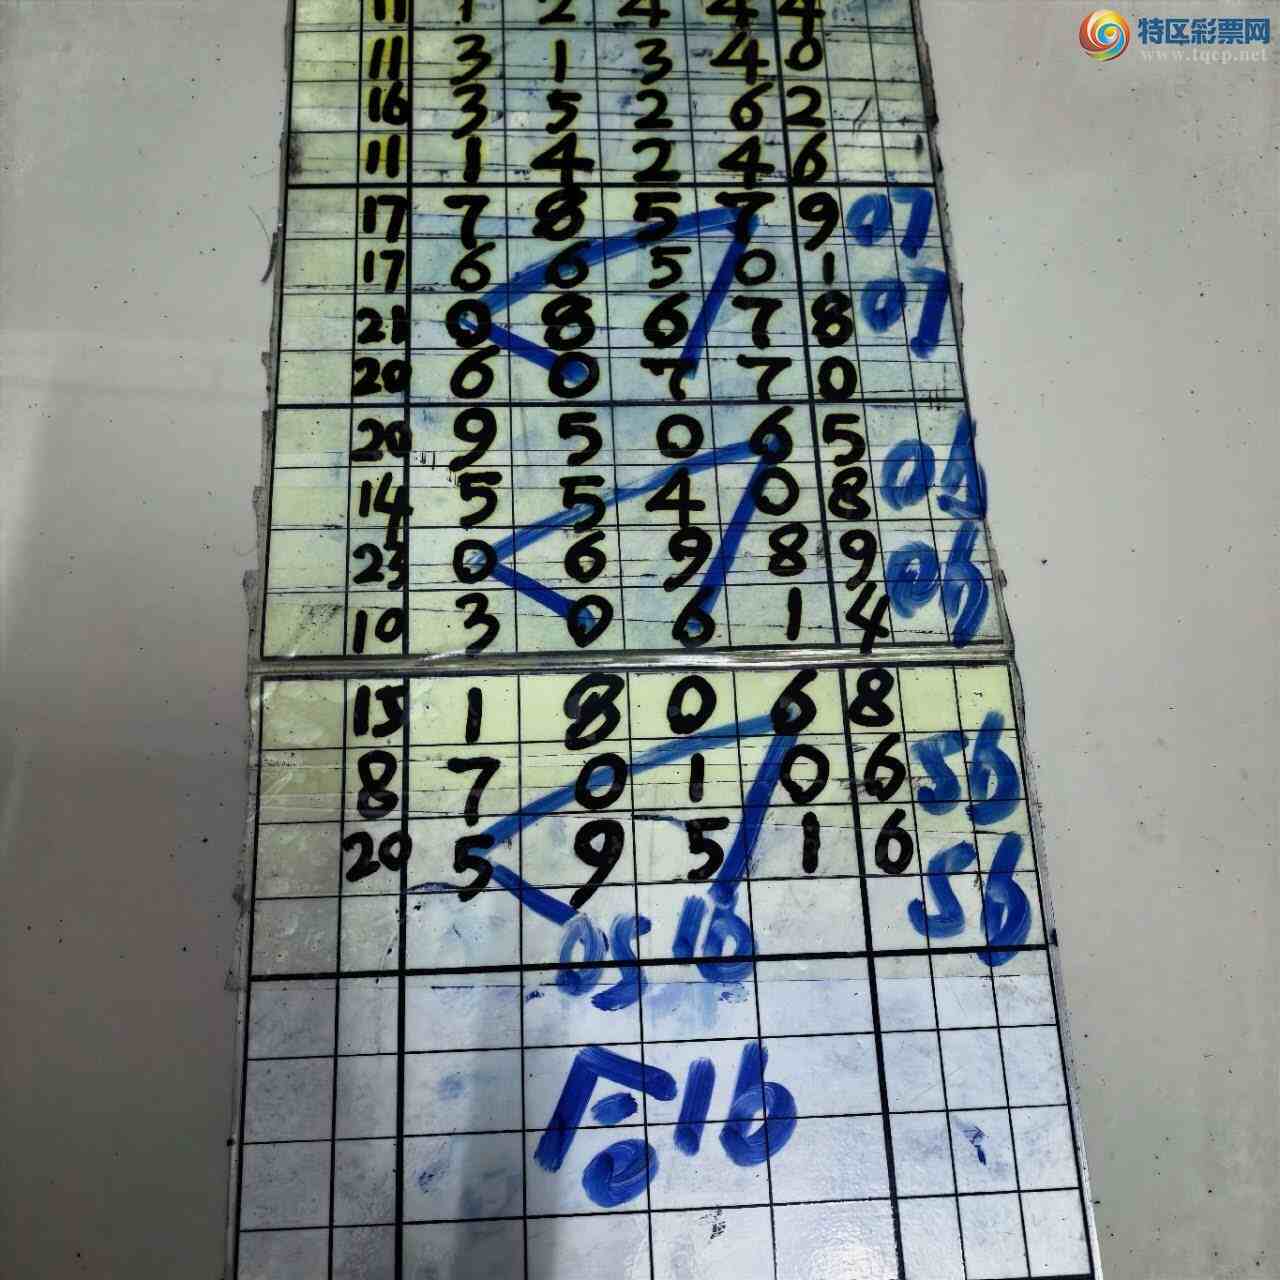 特区彩票网
www.tqcp.net
11 1 2 4 4 4
11 3 1 3 4 0
16 3 5 2 6 2
11 1 4 2 4 6
17 7 8 5 7 9 07
17 6 6 5 0 1
21 0 8 6 7 8 07
20 6 0 7 7 0
20 9 5 0 6 5
14 5 5 4 0 8 06
23 0 6 9 8 9
10 3 0 6 1 4 06
15 1 8 0 6 8
8 7 0 1 0 6 56
20 5 9 5 1 6
56
05 16
后16